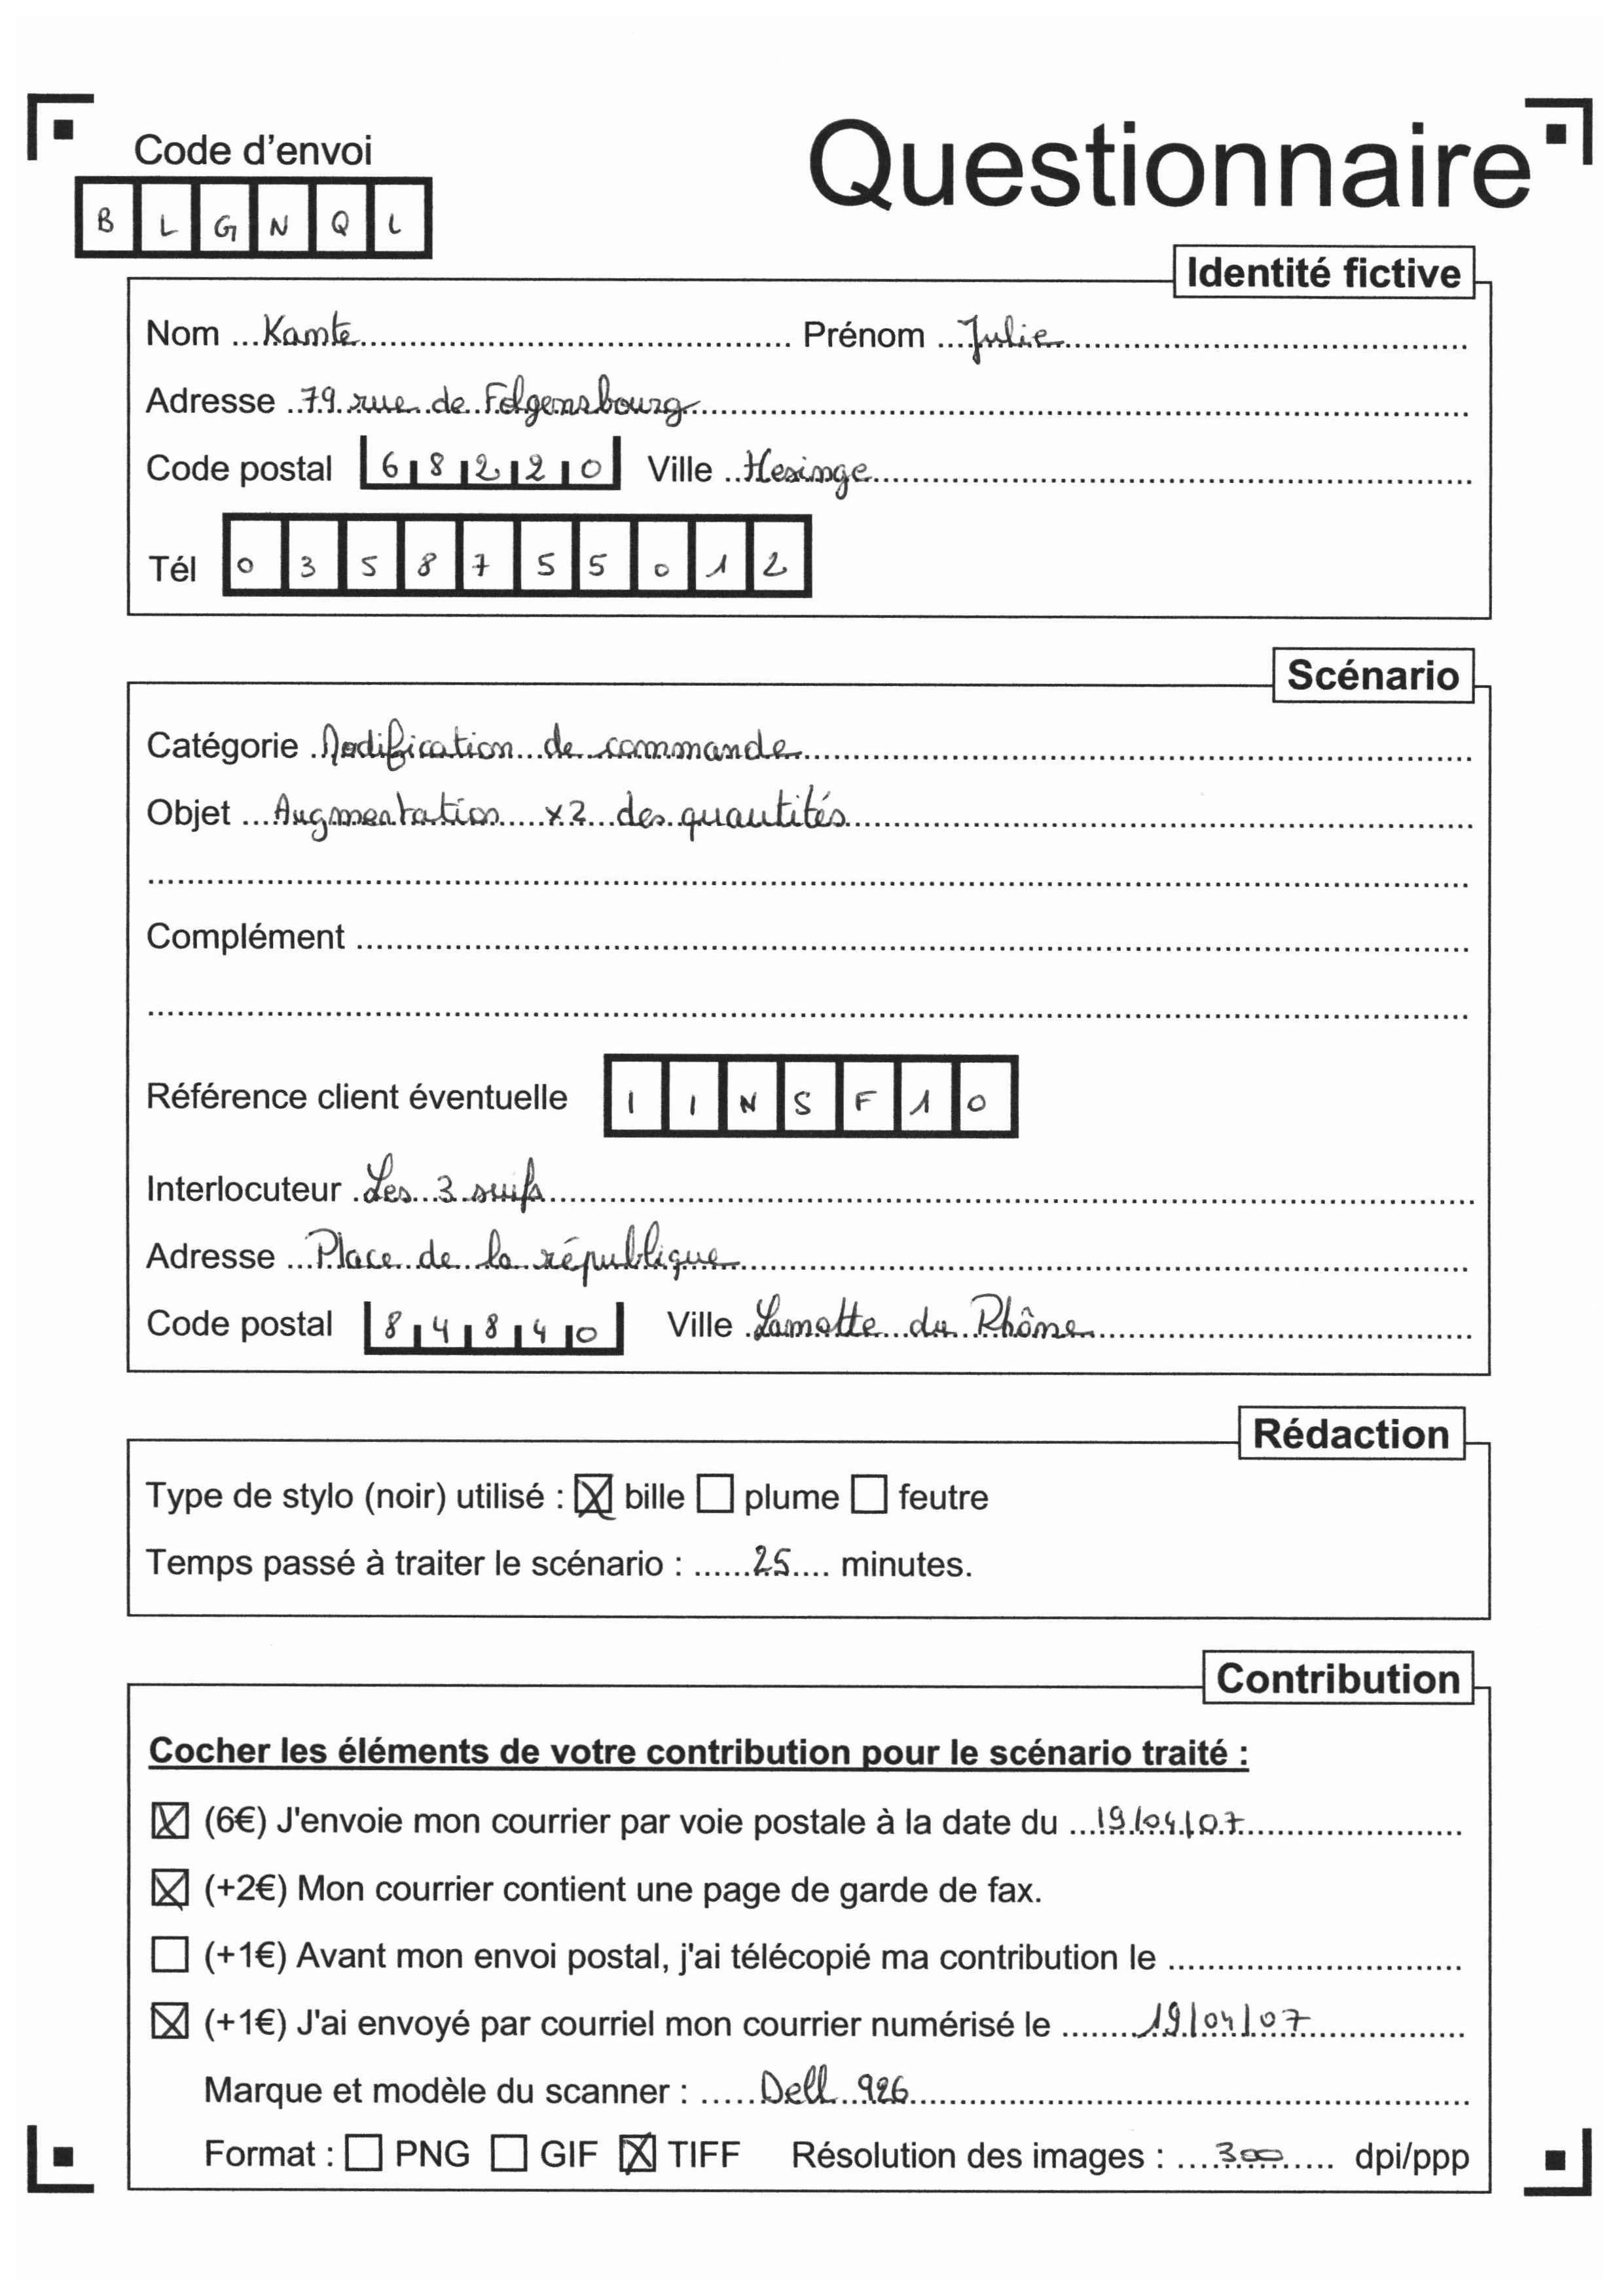 Code d'envoi
Questionnaire
B L G N Q L
Identité fictive
Nom Kamte Prénom Julie
Adresse 79 rue de Folgensbourg
Code postal 68220 Ville Hesinge
Tél 0358755012
Scénario
Catégorie Modification de commande
Objet Augmentation x2 des quantités
Complément
Référence client éventuelle I I N S F 1 0
Interlocuteur Les 3 suifs
Adresse Place de la république
Code postal 84840 Ville Lamotte du Rhône
Rédaction
Type de stylo (noir) utilisé : ☒ bille ☐ plume ☐ feutre
Temps passé à traiter le scénario : 25 minutes.
Contribution
Cocher les éléments de votre contribution pour le scénario traité :
☒ (6€) J'envoie mon courrier par voie postale à la date du 19/04/07
☒ (+2€) Mon courrier contient une page de garde de fax.
☐ (+1€) Avant mon envoi postal, j'ai télécopié ma contribution le
☒ (+1€) J'ai envoyé par courriel mon courrier numérisé le 19/04/07
Marque et modèle du scanner : Dell 926
Format : ☐ PNG ☐ GIF ☒ TIFF Résolution des images : 300 dpi/ppp